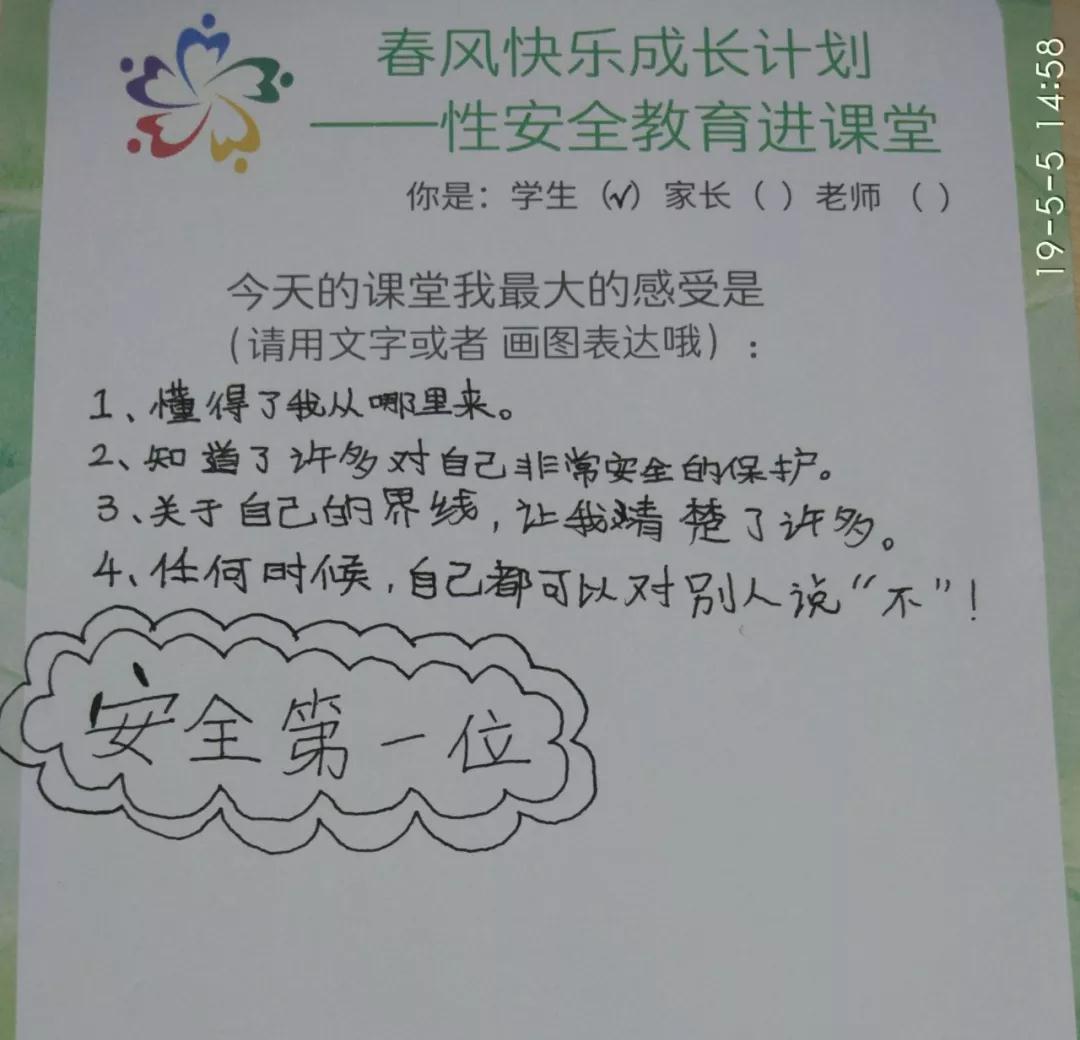 春风快乐成长计划
——性安全教育进课堂
你是：学生（√）家长（ ）老师（ ）
今天的课堂我最大的感受是
（请用文字或者 画图表达哦）：
1、懂得了我从哪里来。
2、知道了许多对自己非常安全的保护。
3、关于自己的界线，让我清楚了许多。
4、任何时候，自己都可以对别人说“不”！
安全第一位
19-5-5 14:58